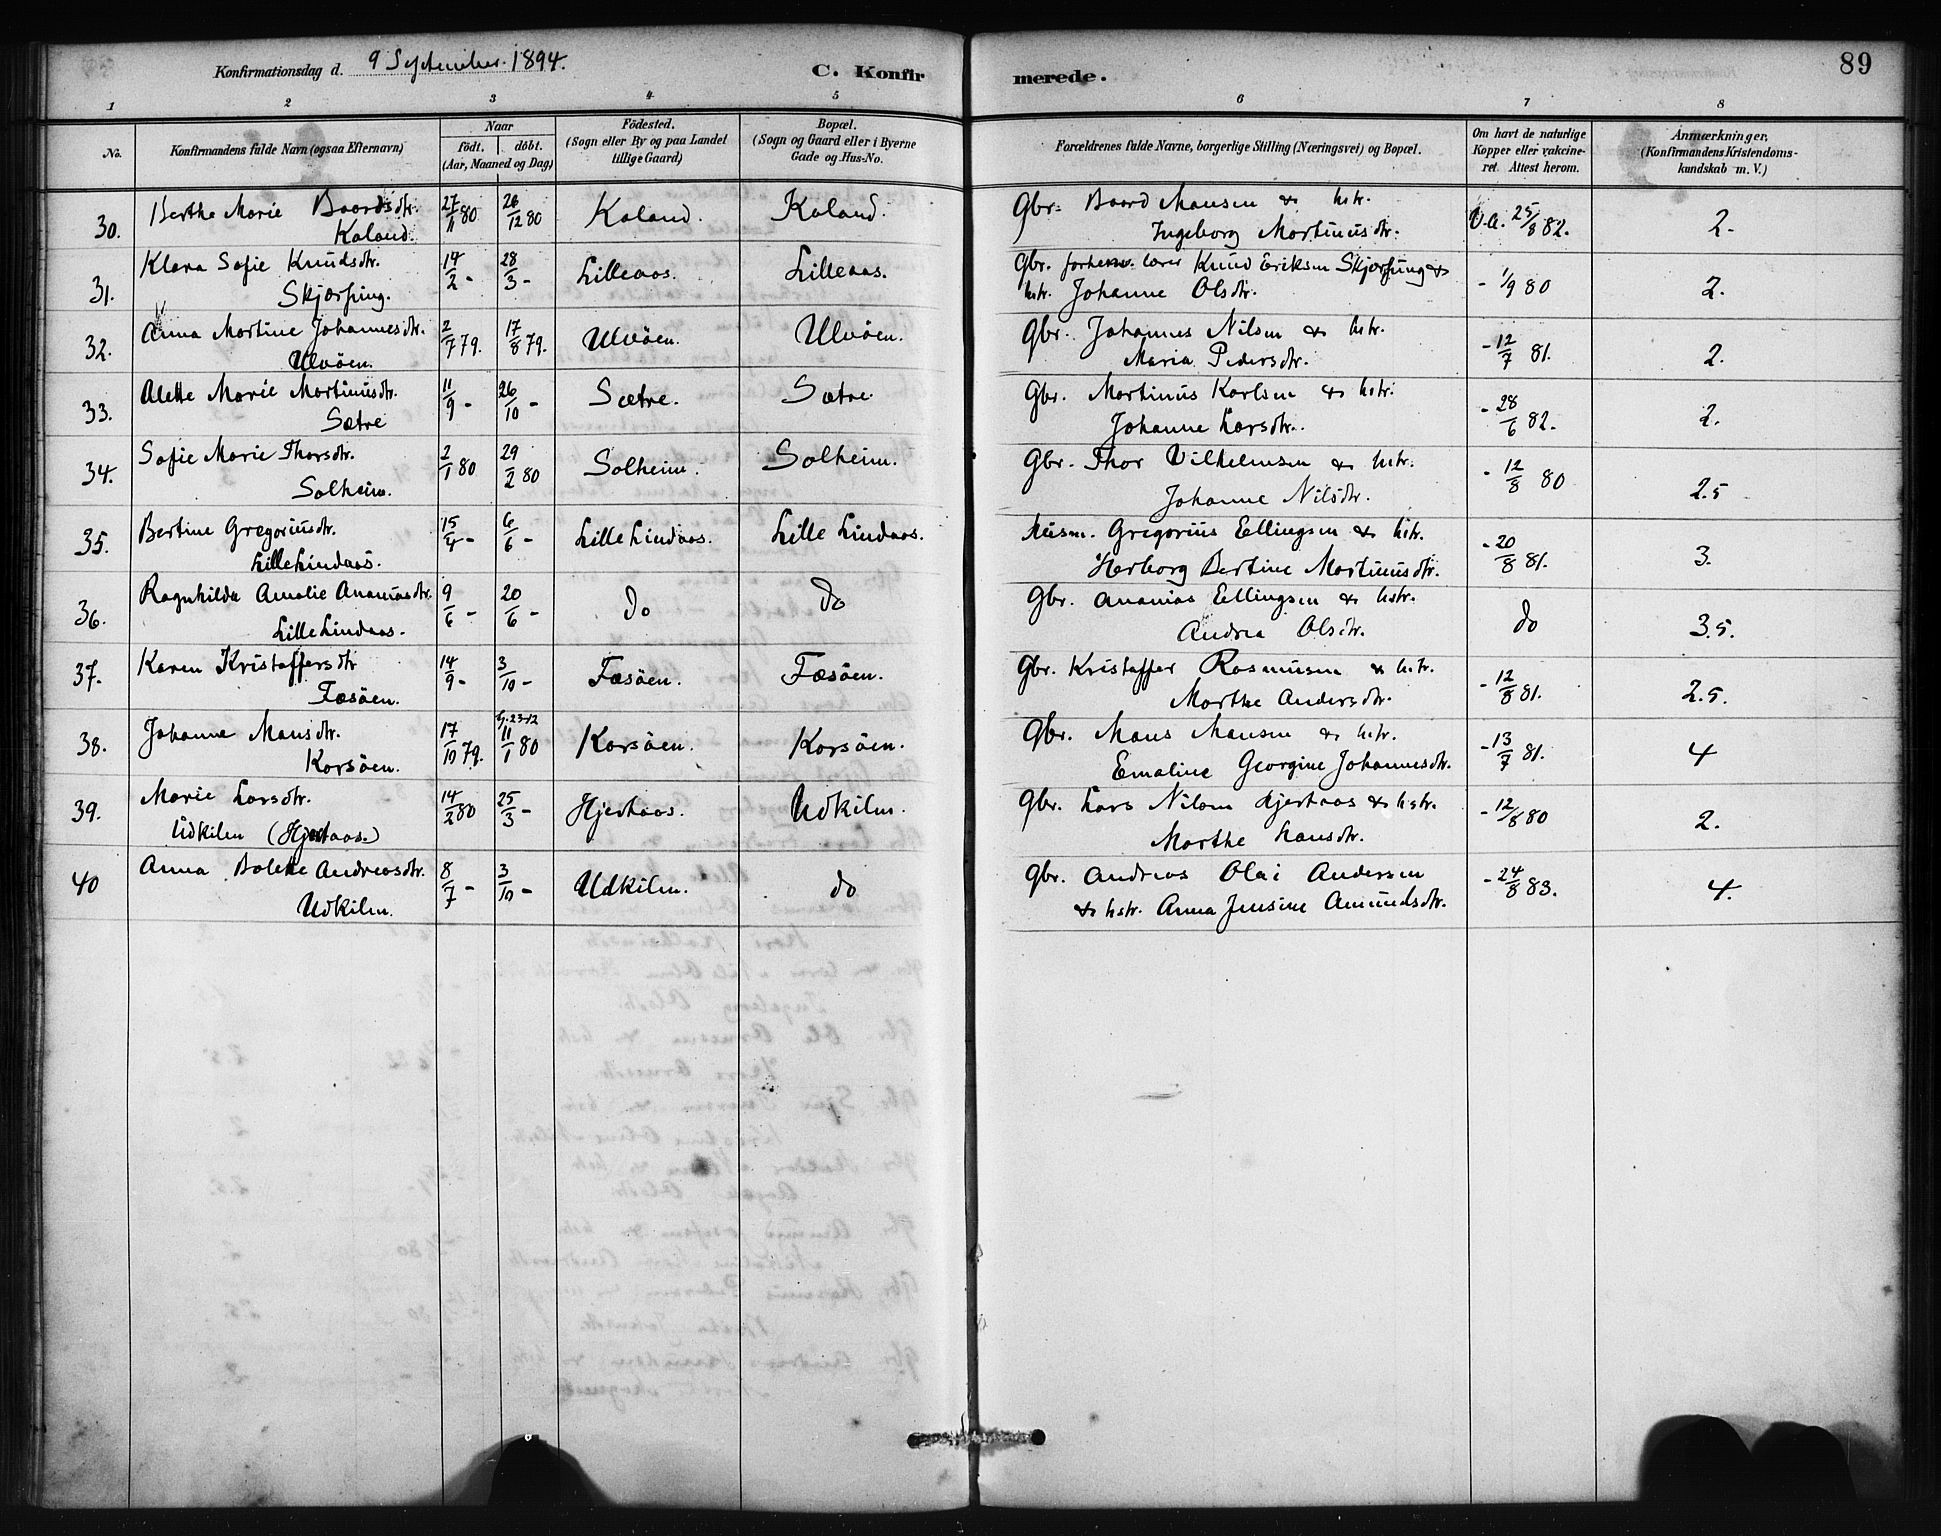 Konfirmationsdag d. 9 September 1894.
C. Konfir merede. 89
1 2 3 4 5 6 7 8
No.
Konfirmandens fulde Navn (ogsaa Efternavn)
Naar
födt. döbt.
(Aar, Maaned og Dag)
Födested.
(Sogn eller By og paa Landet
tillige Gaard)
Bopæl.
(Sogn og Gaard eller i Byerne
Gade og Hus-No.
Forældrenes fulde Navne, borgerlige Stilling (Næringsvei) og Bopæl.
Om havt de naturlige
Kopper eller vakcine-
ret. Attest herom.
Anmærkninger,
(Konfirmandens Kristendoms-
kundskab m. V.)
30. Berthe Marie Baardsdtr. 27/11 80 26/12 80 Kaland. Kaland. Gbr. Baard Mansen & hstr. V.a. 25/8 82. 2.
Kaland. Ingeborg Martinusdtr.
31. Klara Sofie Knudsdtr. 14/2 - 28/3 - Lilleaas. Lilleaas. Gbr. forhenv. lærer Knud Eriksen Skjærping & - 1/9 80 2.
Skjærping. hstr. Johanne Olsdtr.
32. Anna Martine Johannesdtr. 2/7 79. 17/8 79. Ulvöen. Ulvöen. Gbr. Johannes Nilsen & hstr. - 12/7 81. 2.
Ulvöen. Maria Pedersdtr.
33. Alette Marie Martinusdtr. 11/9 - 26/10 - Sætre. Sætre Gbr. Martinus Karlsen & hstr. - 28/6 82. 2.
Sætre Johanne Larsdtr.
34. Sofie Marie Thorsdtr. 2/1 80 29/2 80 Solheim. Solheim. Gbr. Thor Vilhelmsen & hstr. - 12/8 80 2.5
Solheim. Johanne Nilsdtr.
35. Bertine Gregoriusdtr. 15/4 - 6/6 - Lille Lindaas. Lille Lindaas. Husm. Gregorius Ellingsen & hstr. - 20/8 81. 3.
Lille Lindaas. Herborg Bertine Martinusdtr.
36. Ragnhilda Amalie Ananiasdtr. 9/6 - 20/6 - do do Gbr. Ananias Ellingsen & hstr. do 3.5.
Lille Lindaas. Andrea Olsdtr.
37. Karen Kristaffersdtr 14/9 - 3/10 - Fæsöen. Fæsöen. Gbr. Kristaffer Rasmusen & hstr. - 12/8 81. 2.5.
Fæsöen. Marthe Andersdtr.
38. Johanne Mansdtr. 17/10 79. 23-12 11/1 80 Korsöen. Korsöen. Gbr. Mans Mansen & hstr. - 13/7 81. 4
Korsöen. Emaline Georgine Johannesdtr.
39. Marie Larsdtr. 14/2 80 25/3 - Hjertaas. Udkilen. Gbr. Lars Nilsen Hjertaas & hstr. - 12/8 80 2.
Udkilen (Hjertaas.) Marthe Hansdtr.
40 Anna Bolette Andreasdtr. 8/7 - 3/10 - Udkilen. do Gbr. Andreas Olai Andersen - 24/8 83. 4.
Udkilen. & hstr. Anna Jensine Amundsdtr.